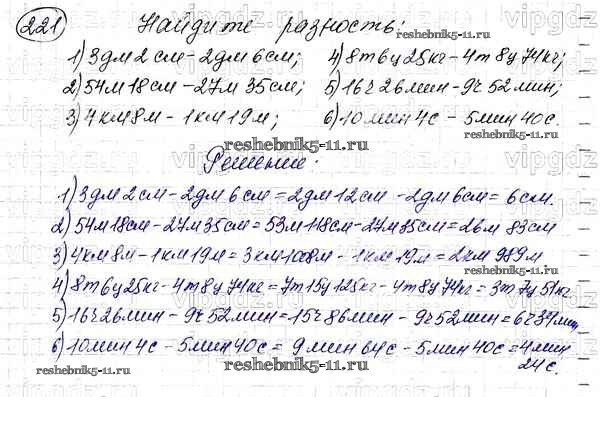 221 Найдите разность:
reshebnik5-11.ru
1) 3дм 2см - 2дм 6см; 4) 8т 6ц 25кг - 4т 8ц 74кг;
2) 54м 18см - 27м 35см; 5) 16ч 26мин - 9ч 52мин;
3) 4км 8м - 1км 19м; 6) 10мин 4с - 5мин 40с.
reshebnik5-11.ru
Решение.
reshebnik5-11.ru
1) 3дм 2см - 2дм 6см = 2дм 12см - 2дм 6см = 6см.
2) 54м 18см - 27м 35см = 53м 118см - 27м 35см = 26м 83см
3) 4км 8м - 1км 19м = 3км 1008м - 1км 19м = 2км 989м
4) 8т 6ц 25кг - 4т 8ц 74кг = 7т 15ц 125кг - 4т 8ц 74кг = 3т 7ц 51кг
5) 16ч 26мин - 9ч 52мин = 15ч 86мин - 9ч 52мин = 6ч 34мин
6) 10мин 4с - 5мин 40с = 9мин 64с - 5мин 40с = 4мин
24с.
reshebnik5-11.ru reshebnik5-11.ru